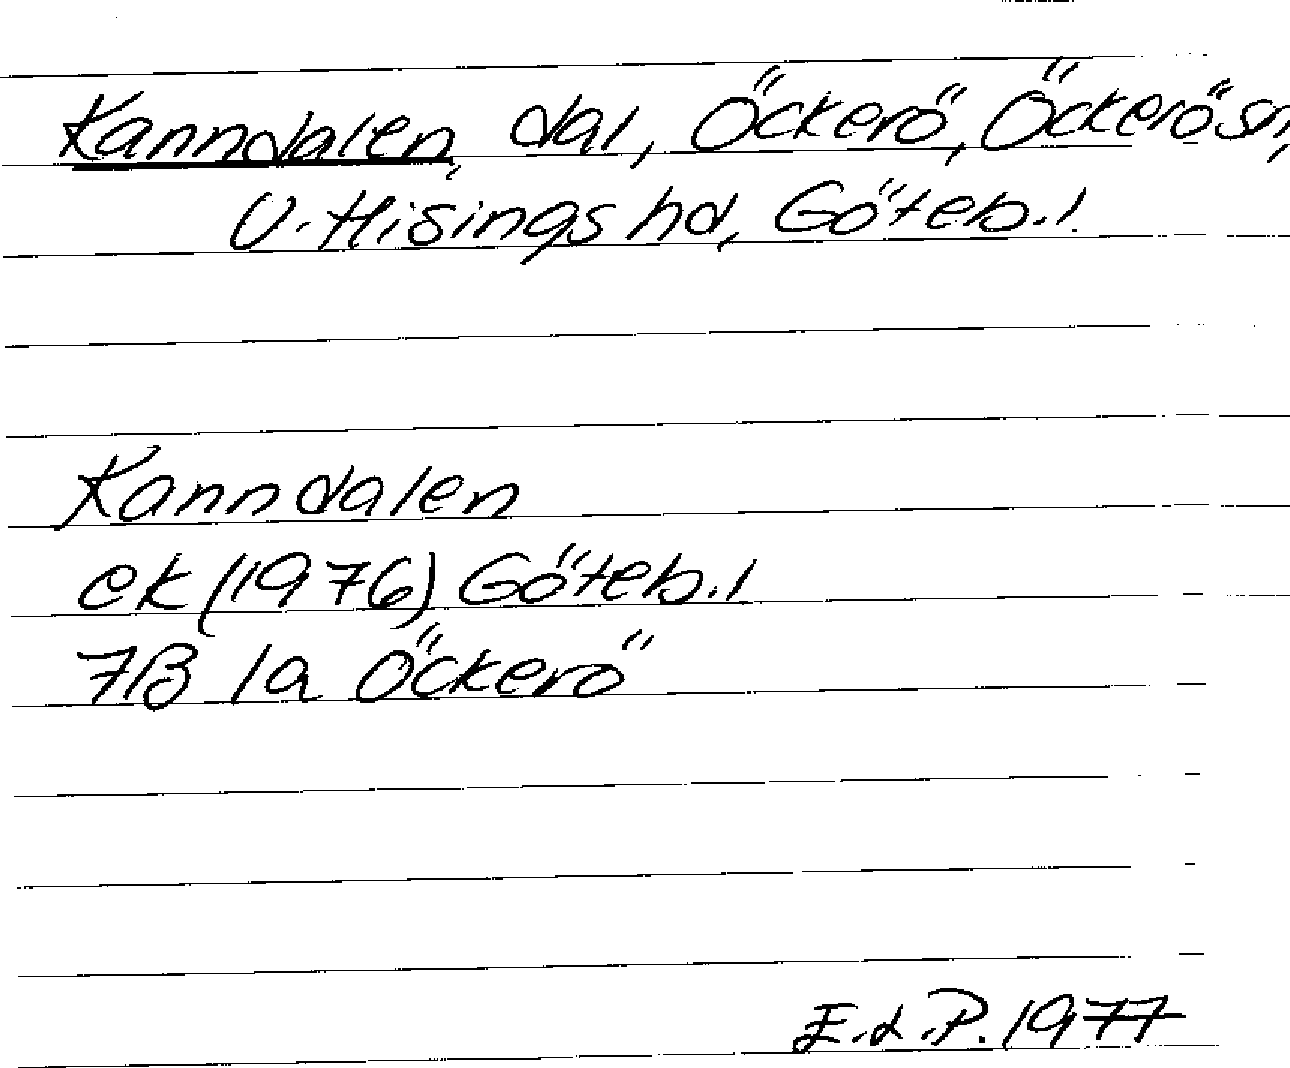 Kanndalen, dal, Öckerö, Öckerö sn,
V. Hisings hd, Göteb. l.
Kanndalen
ek (1976) Göteb. l
7B 1a Öckerö
E.d.P. 1977